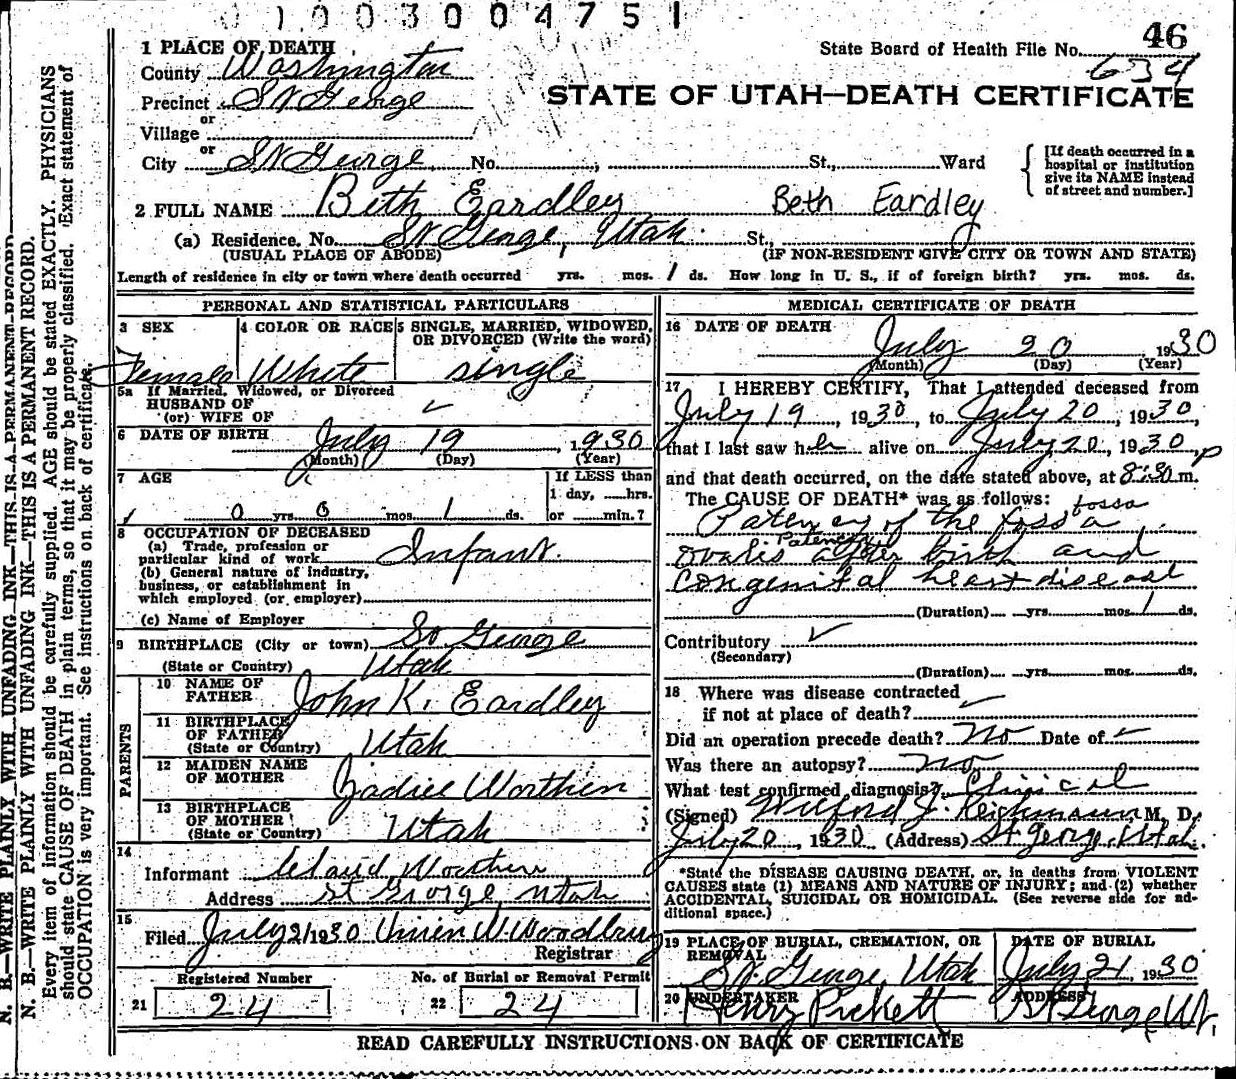 0 1 0 0 3 0 0 4 7 5 1
46
1 PLACE OF DEATH
State Board of Health File No. 634
County Washington
Precinct St George
STATE OF UTAH—DEATH CERTIFICATE
or
Village
or
City St George No. St., Ward
[If death occurred in a hospital or institution give its NAME instead of street and number.]
2 FULL NAME Beth Eardley Beth Eardley
(a) Residence. No. St George, Utah. St.,
(USUAL PLACE OF ABODE) (IF NON-RESIDENT GIVE CITY OR TOWN AND STATE)
Length of residence in city or town where death occurred yrs. mos. 1 ds. How long in U. S., if of foreign birth? yrs. mos. ds.
PERSONAL AND STATISTICAL PARTICULARS
3 SEX 4 COLOR OR RACE 5 SINGLE, MARRIED, WIDOWED, OR DIVORCED (Write the word)
Female White single
5a If Married, Widowed, or Divorced
HUSBAND OF
(or) WIFE OF
6 DATE OF BIRTH July 19 1930
(Month) (Day) (Year)
7 AGE If LESS than
1 day, hrs.
0 yrs 0 mos 1 ds. or min.?
8 OCCUPATION OF DECEASED
(a) Trade, profession or
particular kind of work Infant.
(b) General nature of industry,
business, or establishment in
which employed (or employer)
(c) Name of Employer
9 BIRTHPLACE (City or town) St George
(State or Country) Utah
PARENTS
10 NAME OF
FATHER John K. Eardley
11 BIRTHPLACE
OF FATHER
(State or Country) Utah
12 MAIDEN NAME
OF MOTHER Worthen
13 BIRTHPLACE
OF MOTHER
(State or Country) Utah
14
Informant Worthen
Address St George, Utah
15
Filed July 21 1930 W Woodbury
Registrar
Registered Number No. of Burial or Removal Permit
21 24 22 24
MEDICAL CERTIFICATE OF DEATH
16 DATE OF DEATH
July 20 1930
(Month) (Day) (Year)
17 I HEREBY CERTIFY, That I attended deceased from
July 19, 1930, to July 20, 1930,
that I last saw her alive on July 20, 1930,
and that death occurred, on the date stated above, at 8:30 p m.
The CAUSE OF DEATH* was as follows:
fossa
Patency of the fossa
Patency
ovalis after birth and
congenital heart disease
(Duration) yrs. mos. 1 ds.
Contributory
(Secondary)
(Duration) yrs. mos. ds.
18 Where was disease contracted
if not at place of death?
Did an operation precede death? No Date of
Was there an autopsy? No
What test confirmed diagnosis? Clinical
(Signed) Wilford J. Reichmann, M. D.
July 20, 1930 (Address) St George, Utah.
*State the DISEASE CAUSING DEATH, or, in deaths from VIOLENT
CAUSES state (1) MEANS AND NATURE OF INJURY; and (2) whether
ACCIDENTAL, SUICIDAL OR HOMICIDAL. (See reverse side for ad-
ditional space.)
19 PLACE OF BURIAL, CREMATION, OR REMOVAL DATE OF BURIAL
St. George, Utah July 21, 1930
20 UNDERTAKER ADDRESS
Henry Pickett St George Ut.
READ CAREFULLY INSTRUCTIONS ON BACK OF CERTIFICATE
N. B.—WRITE PLAINLY WITH UNFADING INK—THIS IS A PERMANENT RECORD.
N. B.—WRITE PLAINLY WITH UNFADING INK—THIS IS A PERMANENT RECORD.
Every item of information should be carefully supplied. AGE should be stated EXACTLY. PHYSICIANS
should state CAUSE OF DEATH in plain terms, so that it may be properly classified. Exact statement of
OCCUPATION is very important. See instructions on back of certificate.